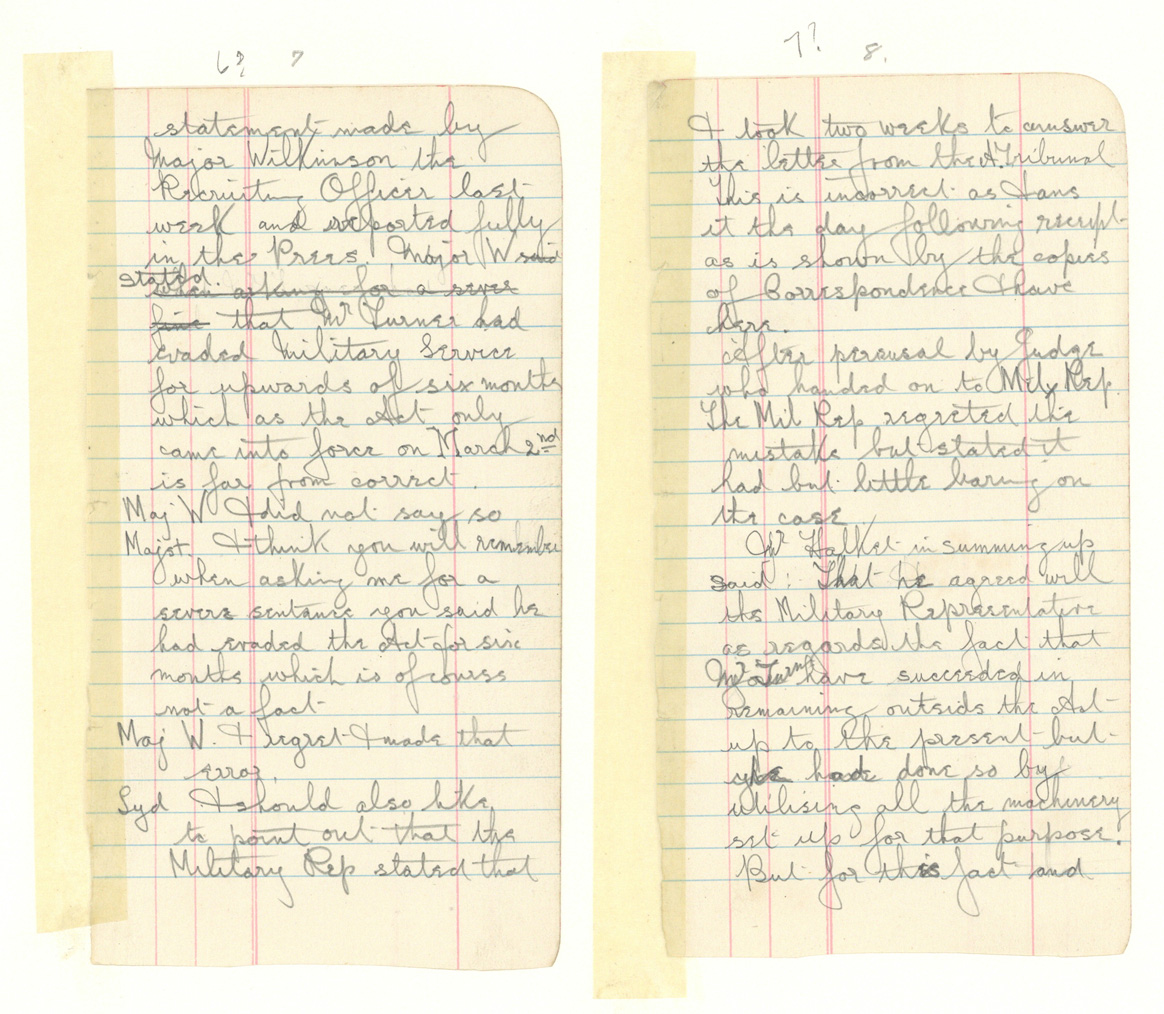 6? 7
statement made by
Major Wilkinson the
Recruiting Officer last
week and reported fully
in the Press. Major W said
stated.
when asking for a sever
fine that Mr Turner had
evaded Military Service
for upwards of six months
which as the Act only
came into force on March 2nd
is far from correct.
Maj W I did not say so
Majst. I think you will remember
when asking me for a
severe sentance you said he
had evaded the Act for six
months which is of course
not a fact
Maj W. I regret I made that
error.
Syd I should also like
to point out that the
Military Rep stated that
7? 8.
I took two weeks to answer
the letter from the A. Tribunal
This is incorrect as I ans
it the day following receipt
as is shown by the copies
of Correspondence I have
here.
After perusal by Judge
who handed on to Mil, Rep
The Mil Rep regreted the
mistake but stated it
had but little baring on
the case
Mr Halket in summing up
said: That he agreed will
the Military Representative
as regards the fact that
Mr Turner have succeeded in
remaining outside the Act
up to the present but
he had done so by
utilising all the machinery
set up for that purpose!
But for this fact and